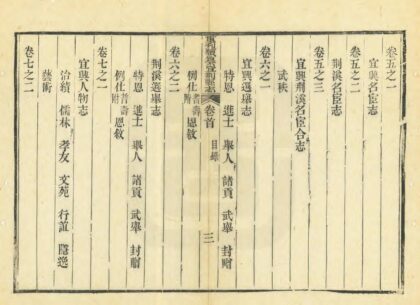 卷五之一
宜興名臣志
卷五之二
荆溪名臣志
卷五之三
宜興荆溪名臣合志
武秩
卷六之一
宜興選舉志
特恩 進士 舉人 諸貢 武舉 封贈
例仕附 耆壽 恩敘
卷首 目錄 三
卷六之二
荆溪選舉志
特恩 進士 舉人 諸貢 武舉 封贈
例仕附 耆壽 恩敘
卷七之一
宜興人物志
治績 儒林 孝友 文苑 行誼 隱逸
藝術
卷七之二